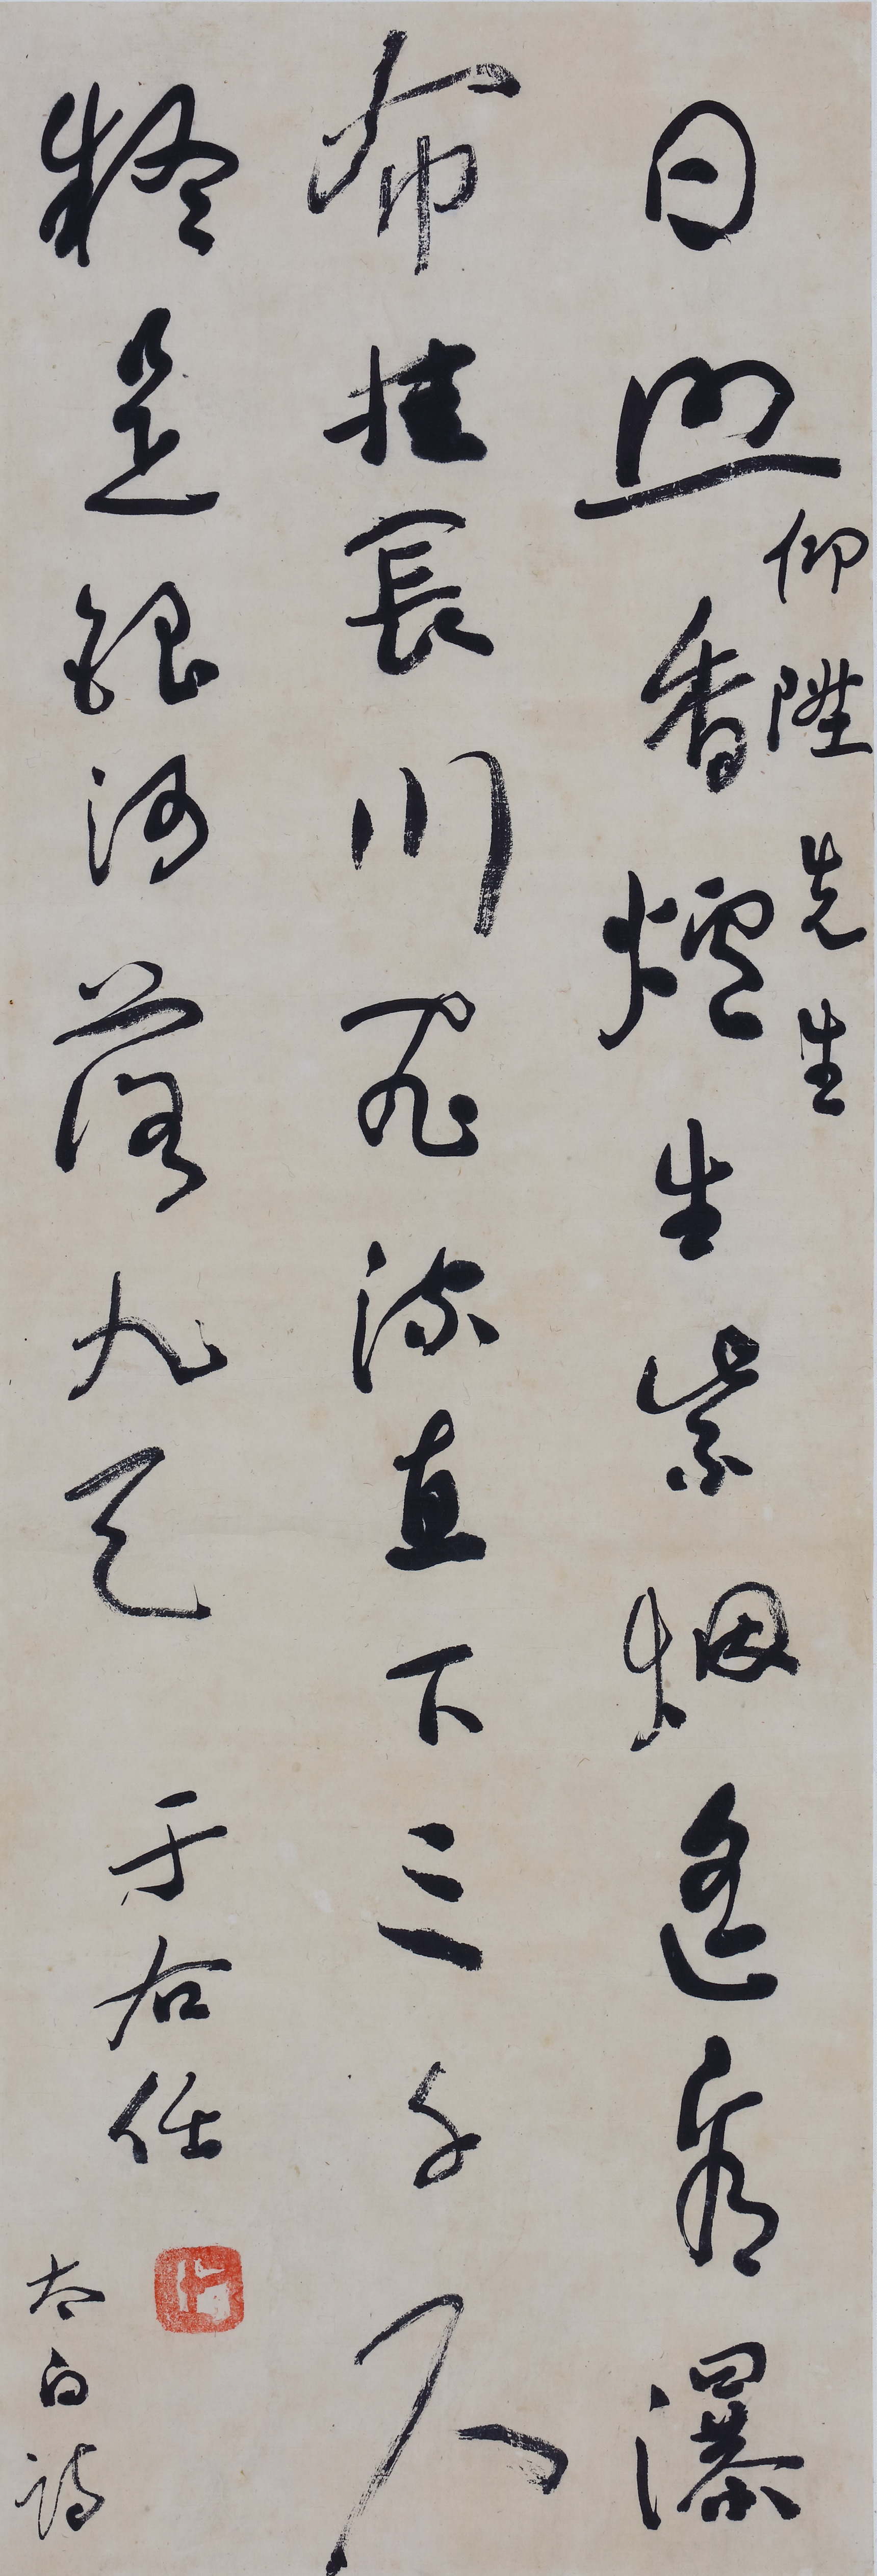 日照香爐生紫烟遙看瀑
仰陞先生
布挂長川飛流直下三千尺
疑是銀河落九天
于右任
太白詩